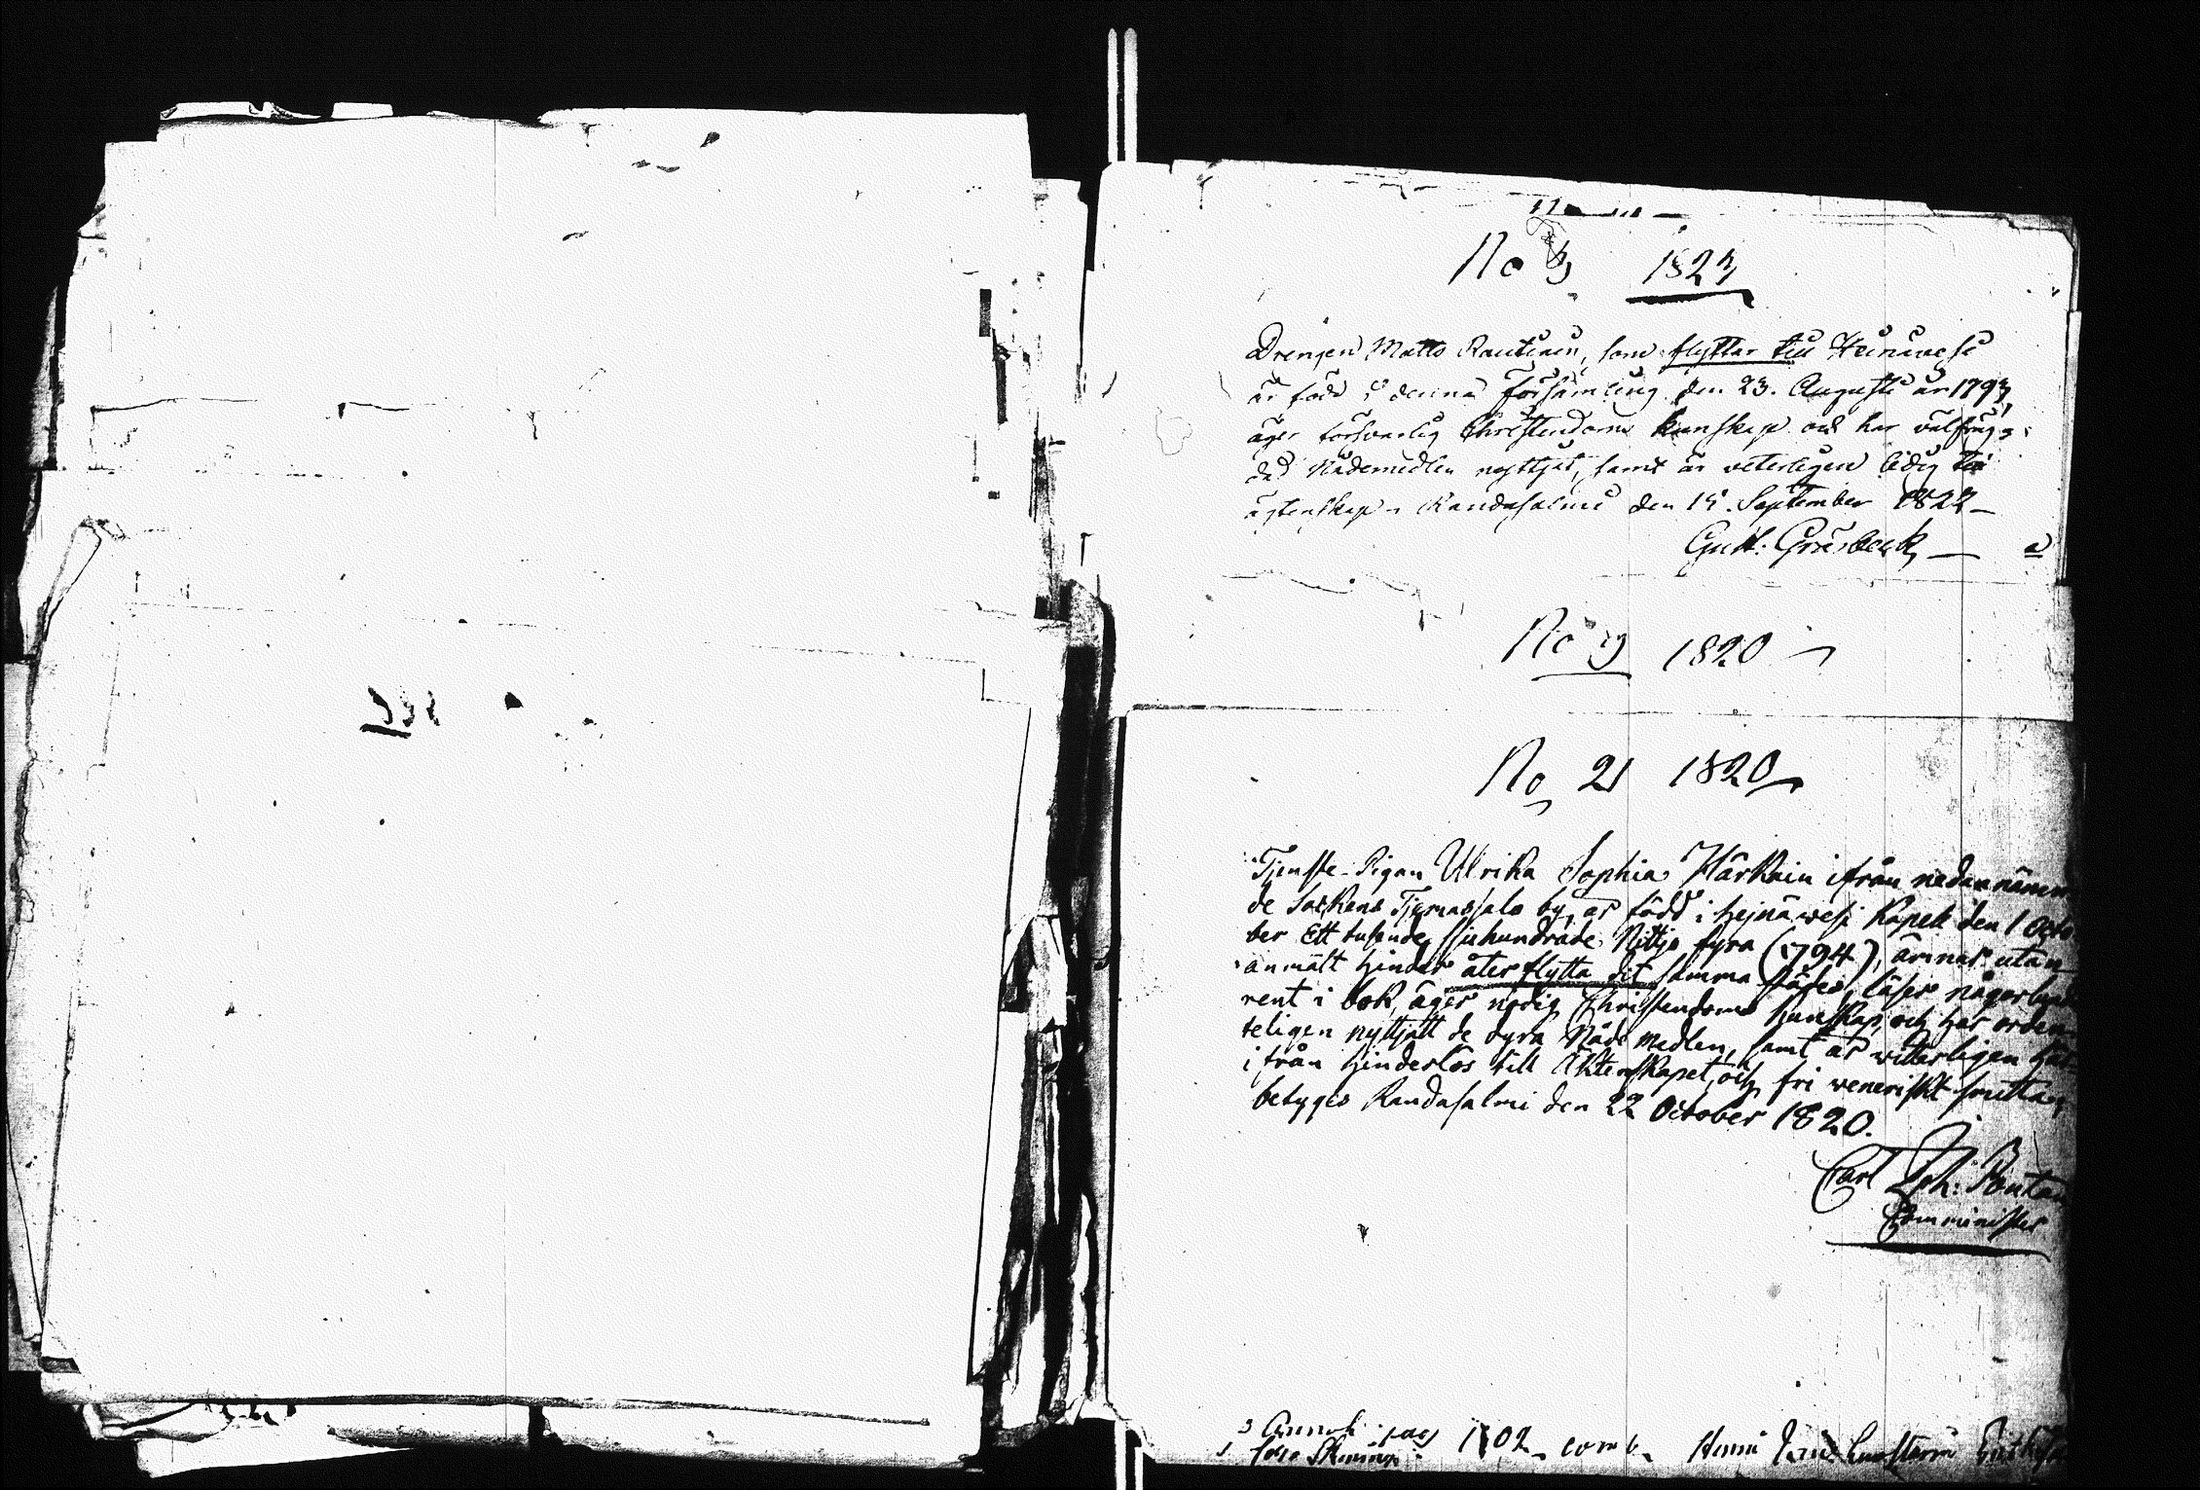 No 3 1823
Drengen Matts Rautiain, som flyttar till Heinävesi
är född i denna församling den 23. Augusti år 1793,
äger försvarlig Christendoms kunskap och har välfräg-
dad Nådemedlen nyttjat, samt är veterligen ledig till
ägtenskap. Randasalmi den 15. September 1822
Gust: Gråsbeck
No 19 1820
No 21 1820
Tjenste-Pigan Ulrika Sophia Härkäin ifrån nedannämn-
de Sockens by, är född i Hejnäwesi Kapell den 1 Octo-
ber Ett tusende sjuhundrade Nittjo fyra (1794), ärnar utan
anmält hinder åter flytta dit samma städes, läser någorlunda
rent i bok, äger nödig Christendoms kunskap, och har orden-
teligen nyttjatt de dyra Nåde medlen, samt är witterligen här-
ifrån hinderlös till Äktenskapet, och fri veneriskt smitta,
betyges Randasalmi den 22 October 1820.
Carl Joh: Poutan
Comminister
1802